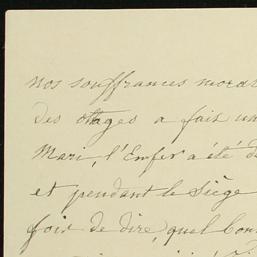 nos souffrances moral
des otages a fait un
Mari, l'Enfer a été d
et pendant le Siège
fois de dire, quel bon